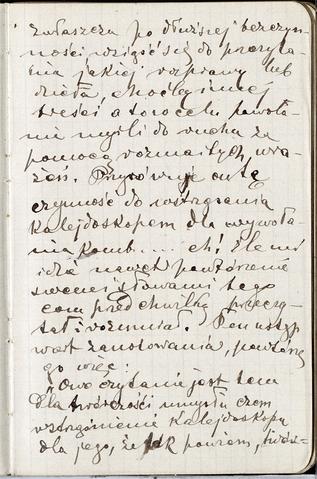 zwłaszcza po dłuższej bezczyn-
ności wziąść się do przeczyta-
nia jakiej rozprawy lub
dzieła choćby innej
treści a to w celu powoła-
nia myśli do ruchu za
pomocą rozmaitych wra-
żeń. Przyrównuje on tę
czynność do wstrząsania
Kalejdoskopem dla wywoła-
nia komb.... eh! źle mi
idzie nawet powtórzenie
swemi słowami tego
com przed chwilką przeczy-
tał i rozumiał. Ten ustęp
wart zanotowania, powtórzę
go więc:
"Owo czytanie jest tem
dla twórczości umysłu czem
wstrząśnienie Kalejdoskopu
dla jego, że tak powiem, twór-